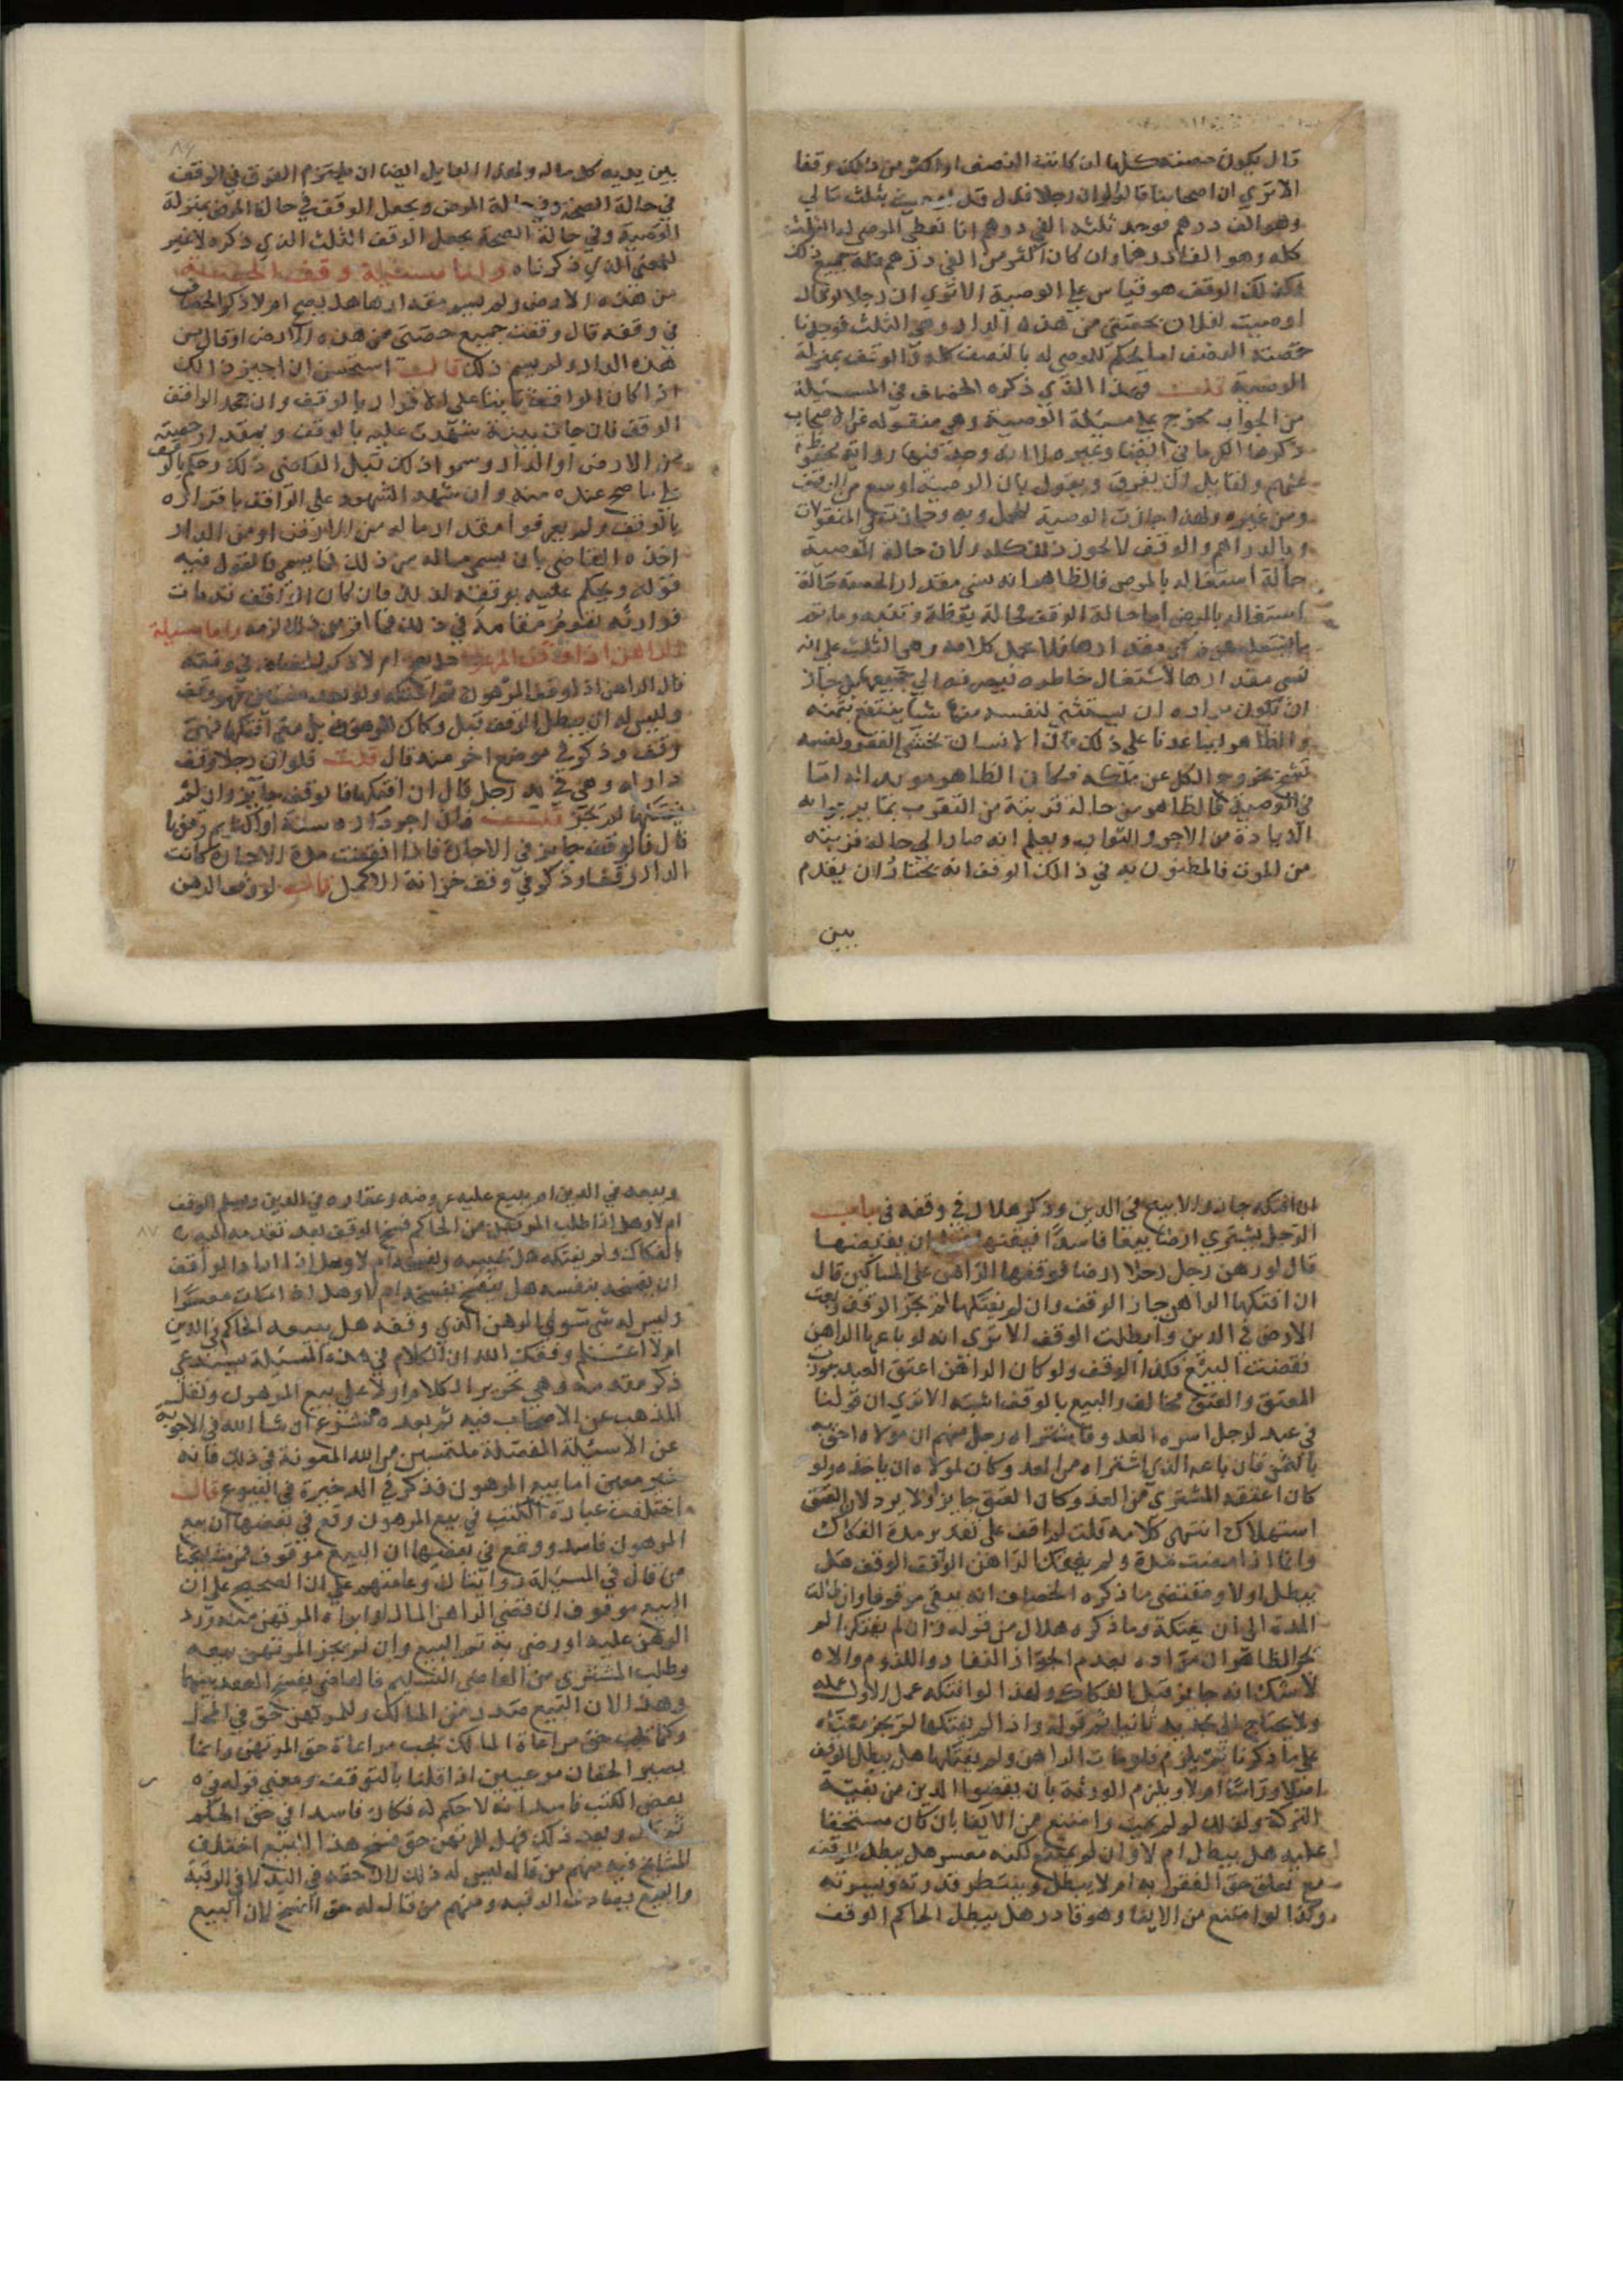 قال يكون حصته كلها ان كانت النصف او اكثر من ذلك وقفا
الا تري ان اصحابنا قالوا لو ان رجلا قال قد اوصيت بثلث مالي
وهو الف درهم فوجد ثلثه الفي درهم انا نعطي الموصى له الثلث
كله وهو الفا درهم وان كان اكثر من الفي درهم فله جميع ذلك
فكذلك الوقف هو قياس علي الوصية الا تري ان رجلا لو قال
اوصيت لفلان بحصتي من هذه الدار وهي الثلث فوجدنا
حصته النصف انا نحكم للموصى له بالنصف كله والوقف بمنزلة
الوصية قلت فهذا الذي ذكره الخصاف في المسئلة
من الجواب يخرج علي مسئلة الوصية وهي منقوله عن الاصحاب
عنهم ولقايل ان يفرق ويقول بان الوصية اوسع من الوقف
ومن غيره ولهذا جازت الوصية للحمل وبه وجازت في المنقولات
وبالدراهم والوقف لا يجوز ذلك كله ولان حالة الوصية
حالة اشتغاله بالمرض فالظاهر انه نسي مقدار الحصة
نسي مقدارها لاشتغال خاطره فيصرفه الي جميعها
ان تكون مراده ان يستثني لنفسه منها شيا ينتفع بثمنه
والظاهر يساعدنا على ذلك فان الانسان يخشى الفقر ونفسه
تشح بخروج الكل عن ملكه فكان الظاهر مويدا له اما
في الوصية فالظاهر من حاله قرينة من التقرب بما يرجوا به
الزيادة من الاجر والثواب ويعلم انه صار الي حالة قريبة
من الموت فالمظنون به في ذلك الوقف انه يختار ان يقدم
بين
بين يديه كل ماله ولهذا القايل ايضا ان يلتزم الفرق في الوقف
في حالة الصحة وفي حالة المرض ويجعل الوقف في حالة المرض بمنزلة
الوصية وفي حالة الصحة يجعل الوقف الثلث الذي ذكره لا غير
للمعني الذي ذكرناه واما مسئلة وقف الحصة
من هذه الارض ولم يسم مقدارها هل يصح ام لا ذكر الخصاف
في وقفه قال وقفت جميع حصتي من هذه الارض او قال من
هذه الدار ولم يسم ذلك قال استحسن ان اجيز ذلك
اذا كان الواقف ثابتا على الاقرار بالوقف وان جحد الواقف
الوقف فان جات بينة شهدت عليه بالوقف وبمقدار حصته
من الارض او الدار وسموا ذلك قبل القاضي ذلك وحكم بالوقف
علي ما صح عنده منه وان شهد الشهود على الواقف باقراره
بالوقف ولم يعرفوا مقدار ماله من الارض او من الدار
اخذه القاضي بان يسمي ماله من ذلك فما سمي فالقول فيه
قوله ويحكم عليه بوقفه لذلك فان كان الواقف قد مات
فوارثه يقوم مقامه في ذلك فما اقر من ذلك لزمه واما مسئلة
الراهن اذا وقف المرهون هل يصح ام لا ذكر الخصاف في وقفه
قال الراهن اذا وقف المرهون ثم افتكه
وليس له ان يبطل الوقف قبل
وقف وذكر في موضع اخر منه قال قلت فلو ان رجلا وقف
دارا له وهي في يد رجل قال ان افتكها فالوقف جايز وان لم
يفتكها لم يجز قلت فان اجر داره سنة او اكثر ثم وقفها
قال فالوقف جايز في الاجارة فاذا انقضت مدة الاجارة كانت
الدار وقفا وذكر في وقف خزانة الاكمل قال لو وقف الرهن
ان افتكه جاز والا بيع في الدين وذكر هلال في وقفه في باب
الرجل يشتري ارضا بيعا فاسدا فيقفها قبل ان يقبضها
قال لو رهن رجل رجلا ارضا فوقفها الراهن على المساكين قال
ان افتكها الراهن جاز الوقف وان لم يفتكها لم يجز الوقف وبيعت
الارض في الدين وابطلت الوقف الا تري انه لو باعها الراهن
نقضت البيع فكذا الوقف ولو كان الراهن اعتق العبد
المعتق والعتق مخالف والبيع بالوقف اشبه الا تري ان قولنا
في عبد لرجل اسره العدو فاشتراه رجل منهم ان مولاه احق به
بالثمن فان باعه الذي اشتراه من العدو كان لمولاه ان ياخذه ولو
كان اعتقه المشتري من العدو كان العتق جايزا ولا يرد لان العتق
استهلاك انتهى كلامه قلت لو اقف على تقدير مدة الفكاك
وانما اذا مضت مدة ولم يفتك الراهن الواقف الوقف هل
يبطل اولا ومقتضى ما ذكره الخصاف انه يبقى موقوفا وان طالت
المدة الى ان يفتكه وما ذكره هلال من قوله وان لم يفتكها لم
يجز الظاهر ان مراده بعدم الجواز النفاذ واللزوم والا
لا شك انه جايز قبل الفكاك ولهذا لو افتكه عمل الاول عمله
ولا يحتاج الى تجديد ثانيا ثم قوله واذا لم يفتكها لم يجز معناه
على ما ذكرنا لم يلزم فلو مات الراهن ولم يفتكها هل يبطل الوقف
اصلا وراسا ام لا ويلزم الورثة بان يقضوا الدين من بقية
التركة وكذلك لو لم يمت وامتنع من الايفا بان كان مستحقا
عليه هل يبطل ام لا وان لم يمتنع ولكنه معسر هل يبطل الوقف
مع تعلق حق الفقرا به ام لا يبطل وينتظر قدرته وميسرته
وكذا لو امتنع من الايفا وهو قادر هل يبطل الحاكم الوقف
ويبيعه في الدين ام يبيع عليه عروضه وعقاره في الدين ويسلم الوقف
ام لا وهل اذا طلب المرتهن من الحاكم فسخ الوقف بعد تقدمه اليه
بالفكاك ولم يفتكه هل يجيبه ويفسخه ام لا وهل اذا اراد الواقف
ان يفسخه بنفسه هل ينفسخ بفسخه ام لا وهل اذا كان معسرا
وليس له شي سوي الرهن الذي وقفه هل يبيعه الحاكم في الدين
ام لا اعلم وفقك الله ان الكلام في هذه المسئلة يستدعي
ذكر مقدمة وهي تحرير الكلام اولا علي بيع المرهون ونقل
المذهب عن الاصحاب فيه ثم بعده نشرع ان شا الله في الاجوبة
عن الاسئلة المفصلة ملتمسين من الله المعونة في ذلك فانه
خير معين اما بيع المرهون فذكر في الذخيرة في البيوع قال
اختلفت عبارة الكتب في بيع المرهون وقع في بعضها ان بيع
المرهون فاسد ووقع في بعضها ان البيع موقوف فمن مشايخنا
من قال في المسئلة روايتان وعامتهم على ان الصحيح على ان
البيع موقوف ان قضى الراهن المال او ابراه المرتهن منه ورد
الرهن عليه او رضي به تم البيع وان لم يجز المرتهن بيعه
وطلب المشتري من القاضي التسليم فالقاضي يفسخ العقد بينهما
وهذا لان البيع صدر من المالك وللمرتهن حق في المحل
وكما يجب حق مراعاة المالك يجب مراعاة حق المرتهن وانما
يصير الحقان مرعيين اذا قلنا بالتوقف ومعنى قوله في
بعض الكتب فاسد انه لا حكم له فكان فاسدا في حق الحكم
ثم قال وبعد ذلك فهل للمرتهن حق فسخ هذا البيع اختلف
المشايخ فيه منهم من قال ليس له ذلك لان حقه في اليد لا في الرقبة
والبيع يصادف الرقبة ومنهم من قال له حق الفسخ لان البيع